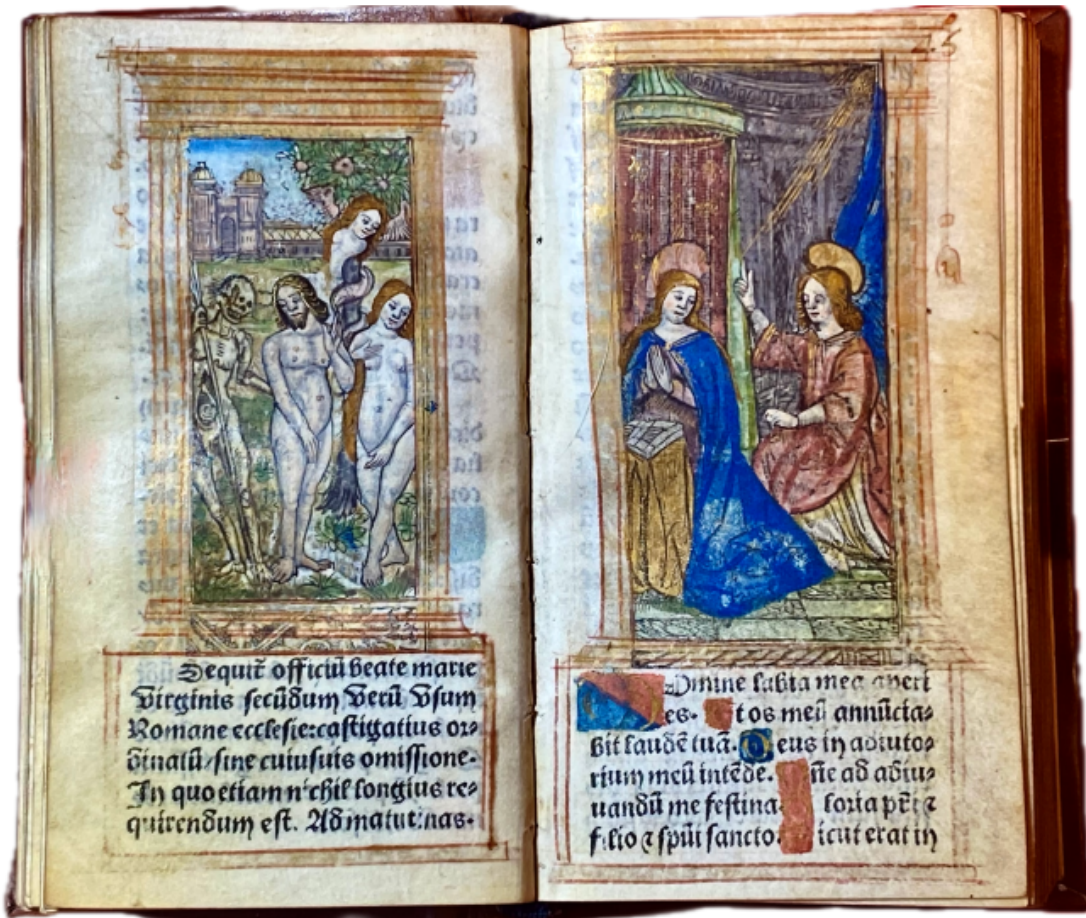 Sequit̃ officiũ beate marie
Virginis secũdum Verũ Vsum
Romane ecclesie: castigatius or⸗
dinatũ/sine cuiusuis omissione.
In quo etiam nichil longius re⸗
quirendum est. Ad matutinas.
Domine labia mea aperi
es. Et os meũ annũcia⸗
bit laudẽ tuã. Deus in adiuto⸗
rium meũ intẽde. ñe ad adiu⸗
uandũ me festina. loria pr̃i ⁊
filio ⁊ spũi sancto. icut erat in